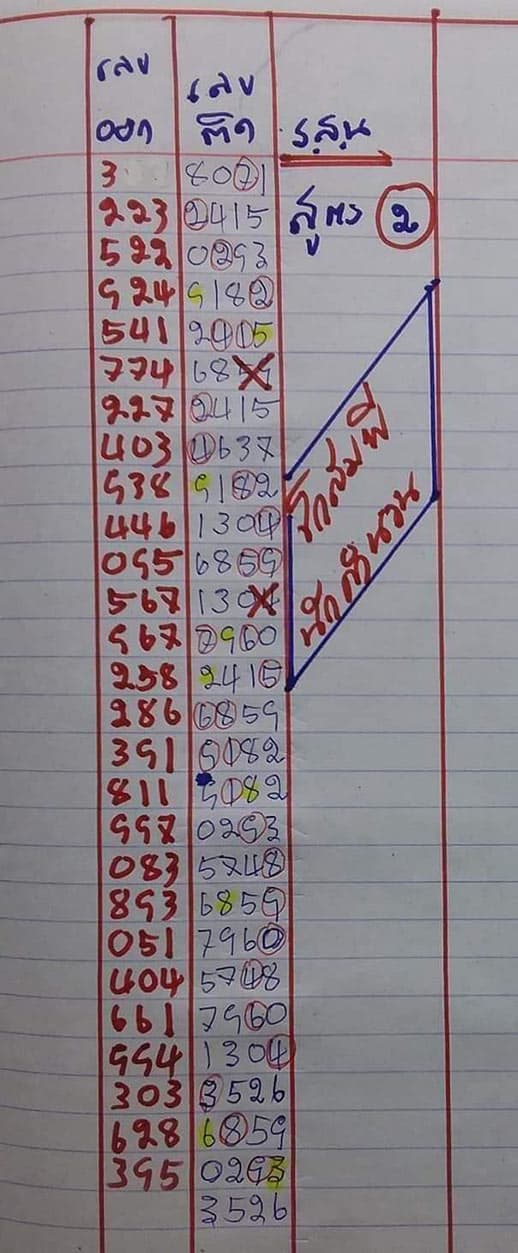 เลข เลข
ออก ติด ร.ส.น
3 8071
223 2415 สูตร 2
522 0293
924 9182
541 2415
774 6859
227 2415
403 4637
938 9182
446 1304
095 6859
567 1304
967 7960
258 2415
286 6859
391 9182
811 9182
997 0293
083 5748
893 6859
051 7960
404 5748
661 7960
994 1304
303 3526
628 6859
395 0293
3526
นักคำนวน